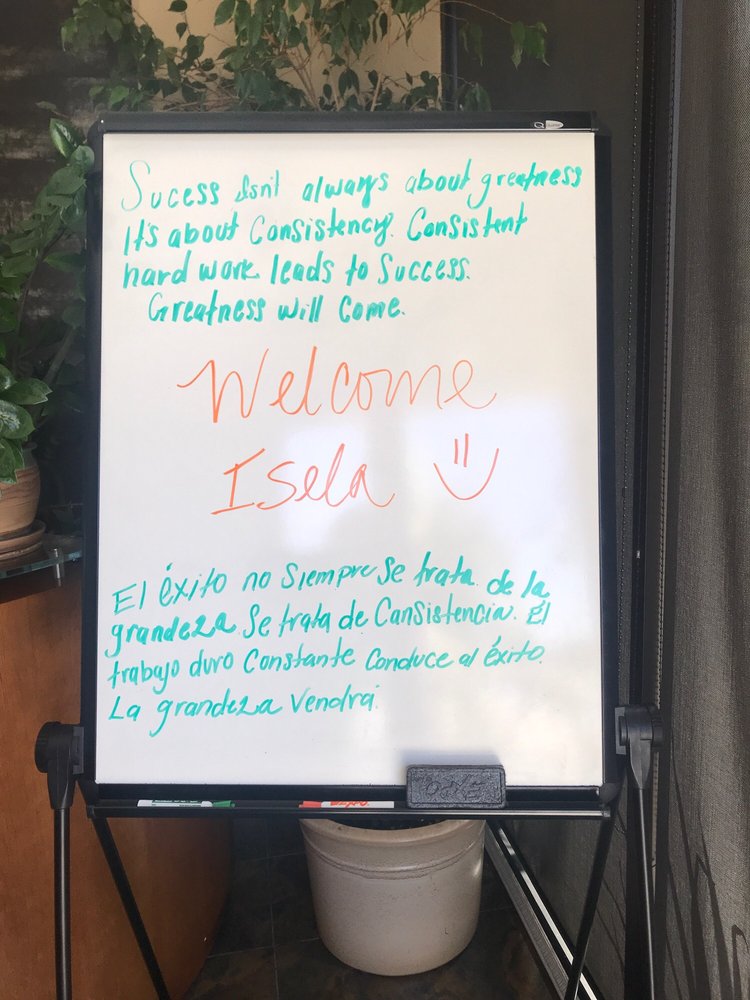 Sucess Isn't always about greatness
It's about Consistency. Consistent
hard work leads to Success.
Greatness will Come.
Welcome
Isela
El éxito no siempre se trata de la
grandeza se trata de Cansistencia. El
trabajo duro Constante Conduce al éxito.
La grandeza Vendrá
EXPO
EXPO